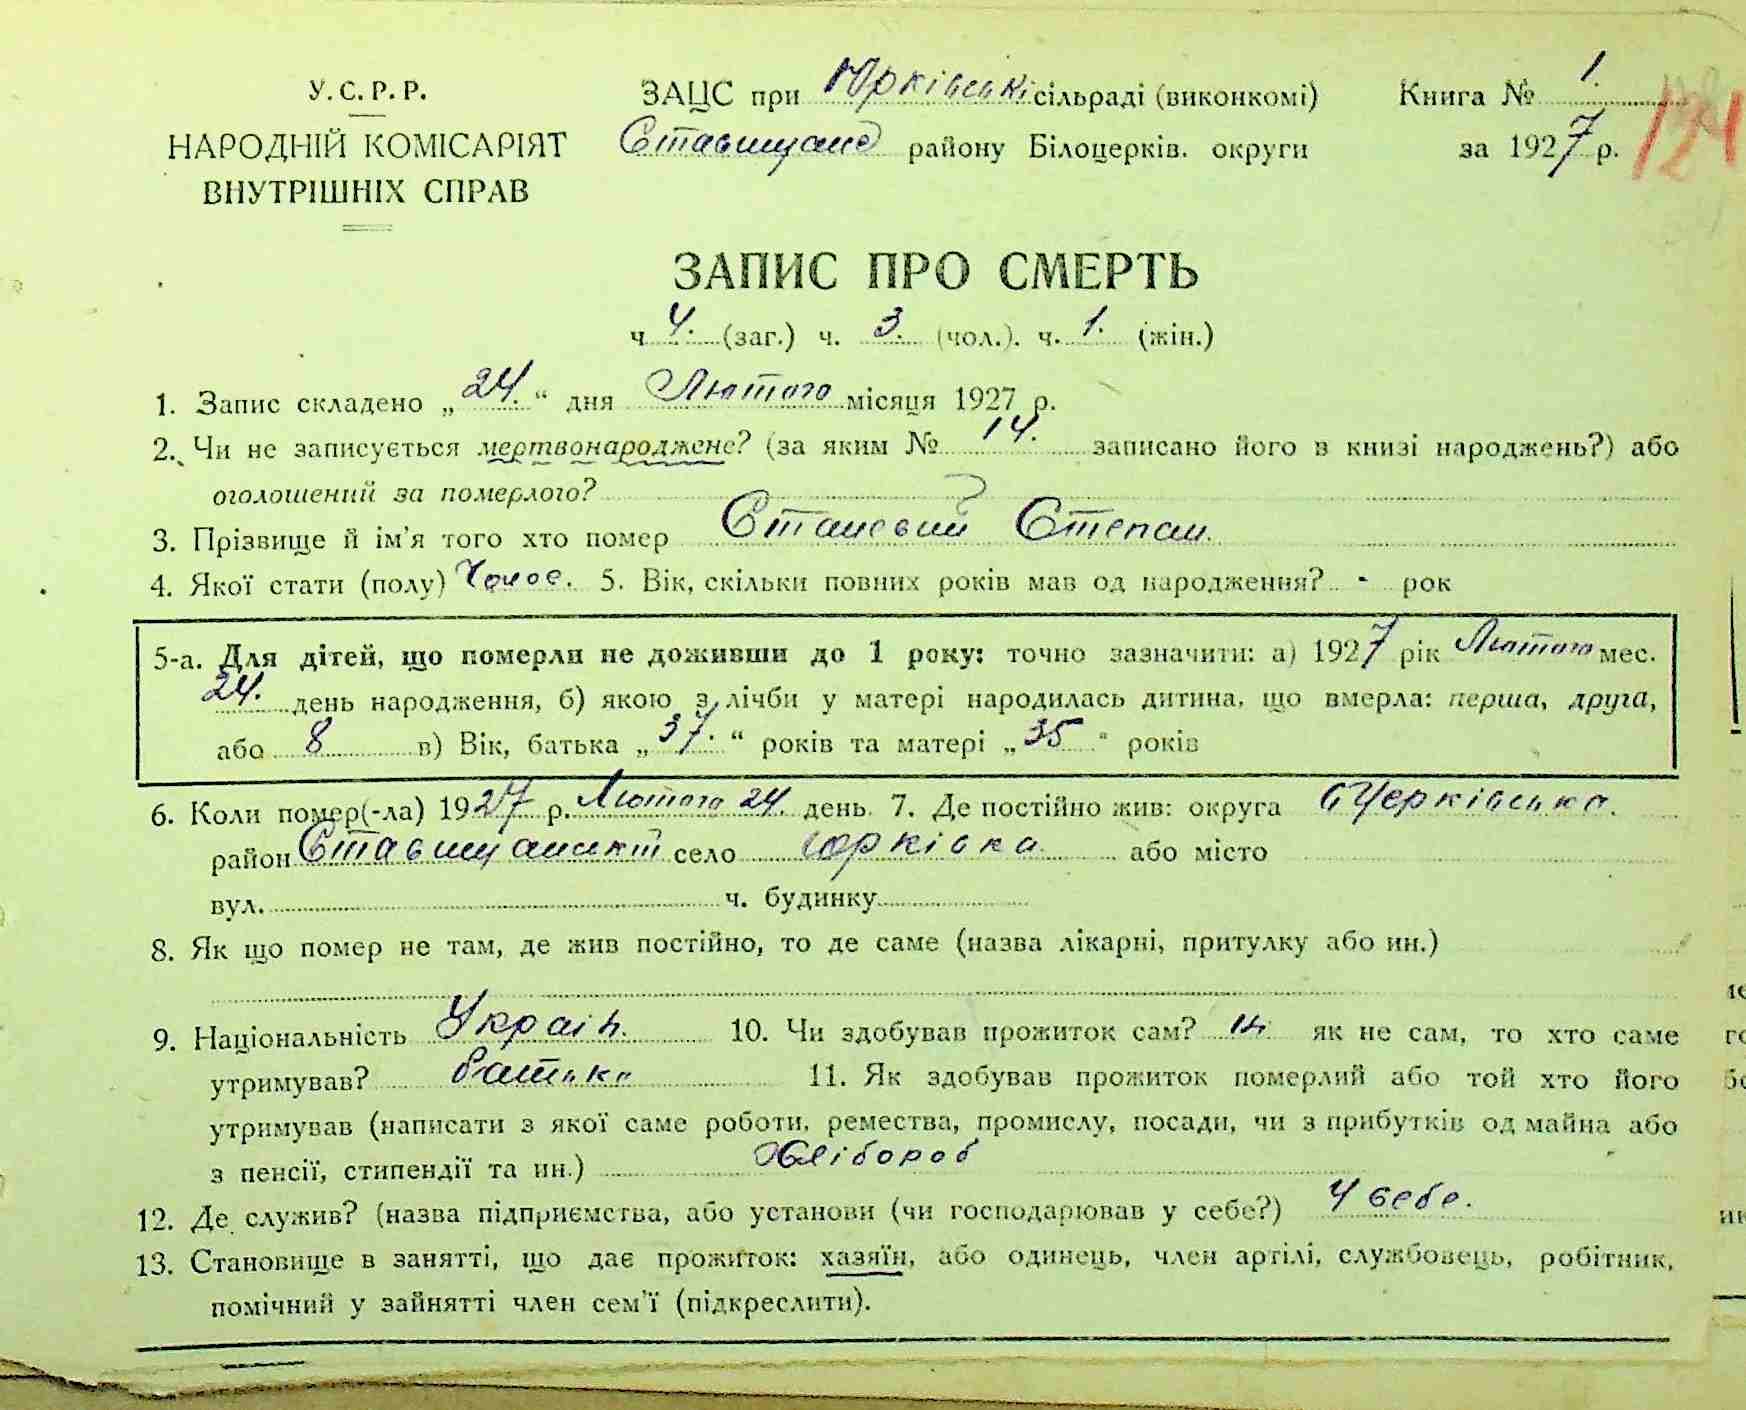 У.С.Р.Р.
НАРОДНІЙ КОМІСАРІЯТ
ВНУТРІШНІХ СПРАВ
ЗАЦС при Юрківській сільраді (виконкомі)
Ставищанс району Білоцерків. округи
Книга № 1.
за 1927 р.
124
ЗАПИС ПРО СМЕРТЬ
ч 4. (заг.) ч. 3. (чол.). ч. 1. (жін.)
1. Запис складено „24.“ дня Лютого місяця 1927 р.
2. Чи не записується мертвонароджене? (за яким № 14. записано його в книзі народжень?) або
оголошений за померлого?
3. Прізвище й ім'я того хто помер Становий Степан.
4. Якої стати (полу) Чолов. 5. Вік, скільки повних років мав од народження? - рок
5-а. Для дітей, що померли не доживши до 1 року: точно зазначити: а) 1927 рік Лютого мес.
24. день народження, б) якою з лічби у матері народилась дитина, що вмерла: перша, друга,
або 8 в) Вік, батька „37.“ років та матері „35“ років
6. Коли помер(-ла) 1927 р. Лютого 24. день. 7. Де постійно жив: округа БЦерківська.
район Ставищанський село Юрківка або місто
вул. ч. будинку
8. Як що помер не там, де жив постійно, то де саме (назва лікарні, притулку або ин.)
9. Національність Україн. 10. Чи здобував прожиток сам? ні як не сам, то хто саме
утримував? батько 11. Як здобував прожиток померлий або той хто його
утримував (написати з якої саме роботи, ремества, промислу, посади, чи з прибутків од майна або
з пенсії, стипендії та ин.) Хлібороб
12. Де служив? (назва підприємства, або установи (чи господарював у себе?) У себе.
13. Становище в занятті, що дає прожиток: хазяїн, або одинець, член артілі, службовець, робітник,
помічний у зайнятті член сем'ї (підкреслити).